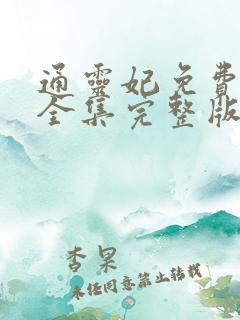 通靈妃免費
全集完整版
杳杲
未经同意禁止转载